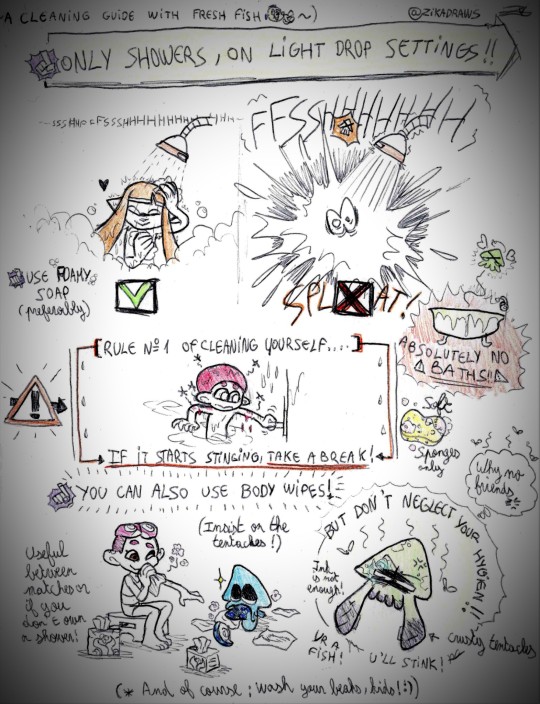 A CLEANING GUIDE WITH FRESH FISH ~)
@ZIKADRAWS
ONLY SHOWERS, ON LIGHT DROP SETTINGS!!
FFSSHHHHHHH
USE FOAMY
SOAP
(preferably)
SPLAT!
ABSOLUTELY NO
BATHS!!
RULE Nº1 OF CLEANING YOURSELF....
IF IT STARTS STINGING, TAKE A BREAK!
Soft
Sponges
only
YOU CAN ALSO USE BODY WIPES!
(Insist on the
tentacles!)
Useful
between
matches or
if you
don't own
a shower!
Why no
friends
BUT DON'T NEGLECT YOUR HYGIEN!!
Ink is
not
enough!
UR A
FISH!
U'LL STINK!
Crusty tentacles
(* And of course; wash your beaks, kids! :))